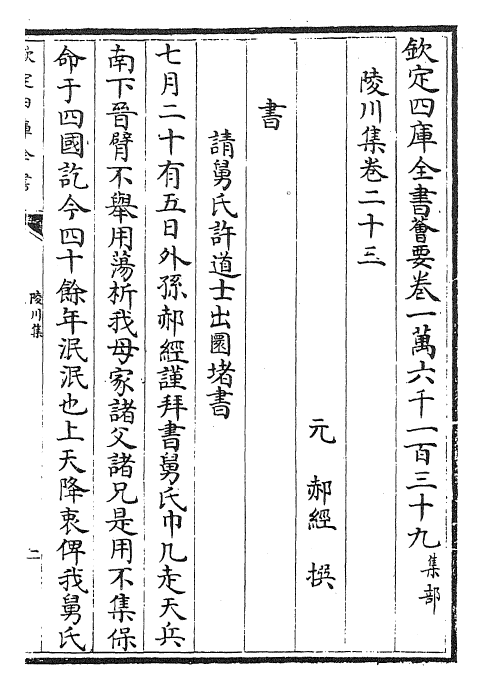 欽定四庫全書薈要卷一萬六千一百三十九集部
陵川集卷二十三
元 郝經 撰
書
請舅氏許道士出圜堵書
七月二十有五日外孫郝經謹拜書舅氏巾几走天兵
南下晉臂不舉用蕩析我母家諸父諸兄是用不集保
命于四國訖今四十餘年泯泯也上天降衷俾我舅氏
欽定四庫全書
陵川集
二